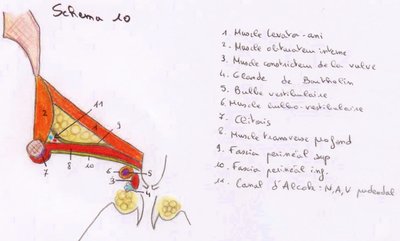 Schema 10
1 Muscle levator-ani
2. Muscle obturateur interne
3. Muscle constricteur de la vulve
4. Glande de Bartholin
5 Bulbe vestibulaire
6. Muscle bulbo-vestibulaire
7. Clitoris
8. Muscle transverse profond
9. Fascia périnéal sup
10. Fascia périnéal inf.
11. Canal d'Alcock - N, A, V pudendal
11
2
1
9
7
8
10
6
5
3
4